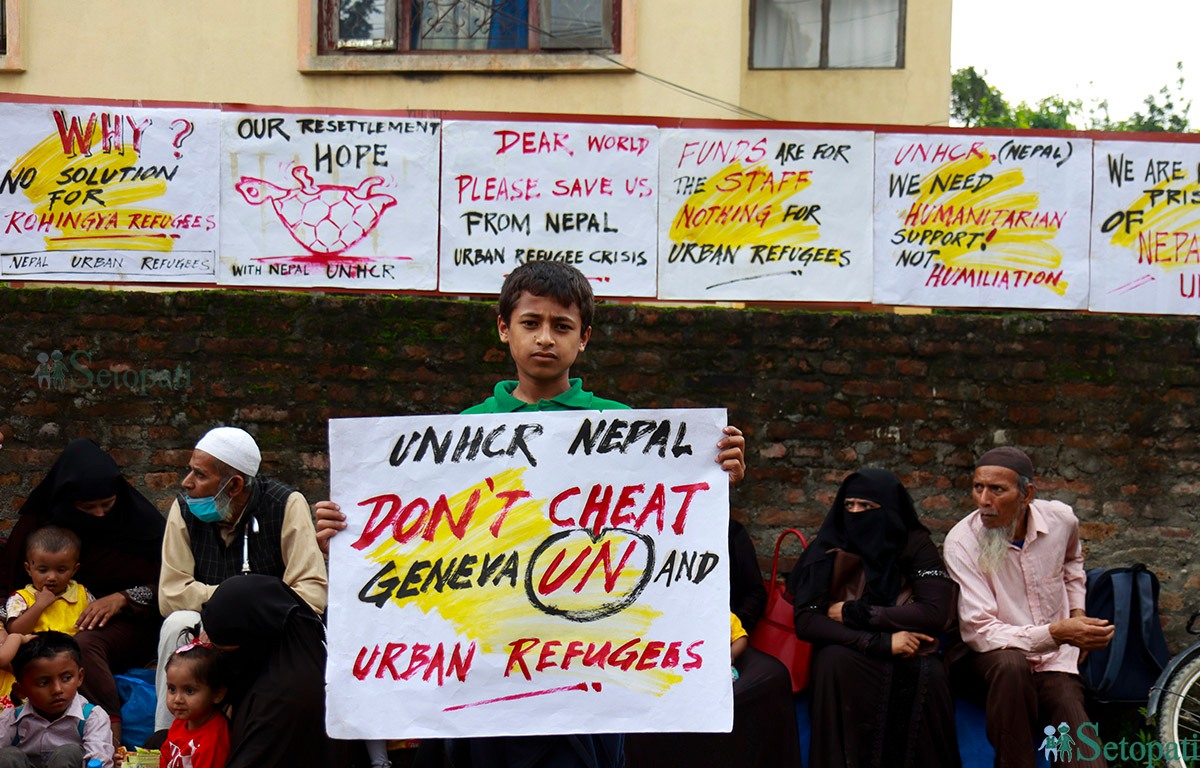 WHY?
NO SOLUTION
FOR
ROHINGYA REFUGEES
NEPAL URBAN REFUGEES
OUR RESETTLEMENT
HOPE
WITH NEPAL UNHCR
DEAR WORLD
PLEASE SAVE US
FROM NEPAL
URBAN REFUGEE CRISIS
FUNDS ARE FOR
THE STAFF
NOTHING FOR
URBAN REFUGEES
UNHCR, (NEPAL)
WE NEED
HUMANITARIAN
SUPPORT!
NOT
HUMILIATION
WE ARE
OF
UNHCR NEPAL
DON'T CHEAT
GENEVA UN AND
URBAN REFUGEES
Setopati
Setopati